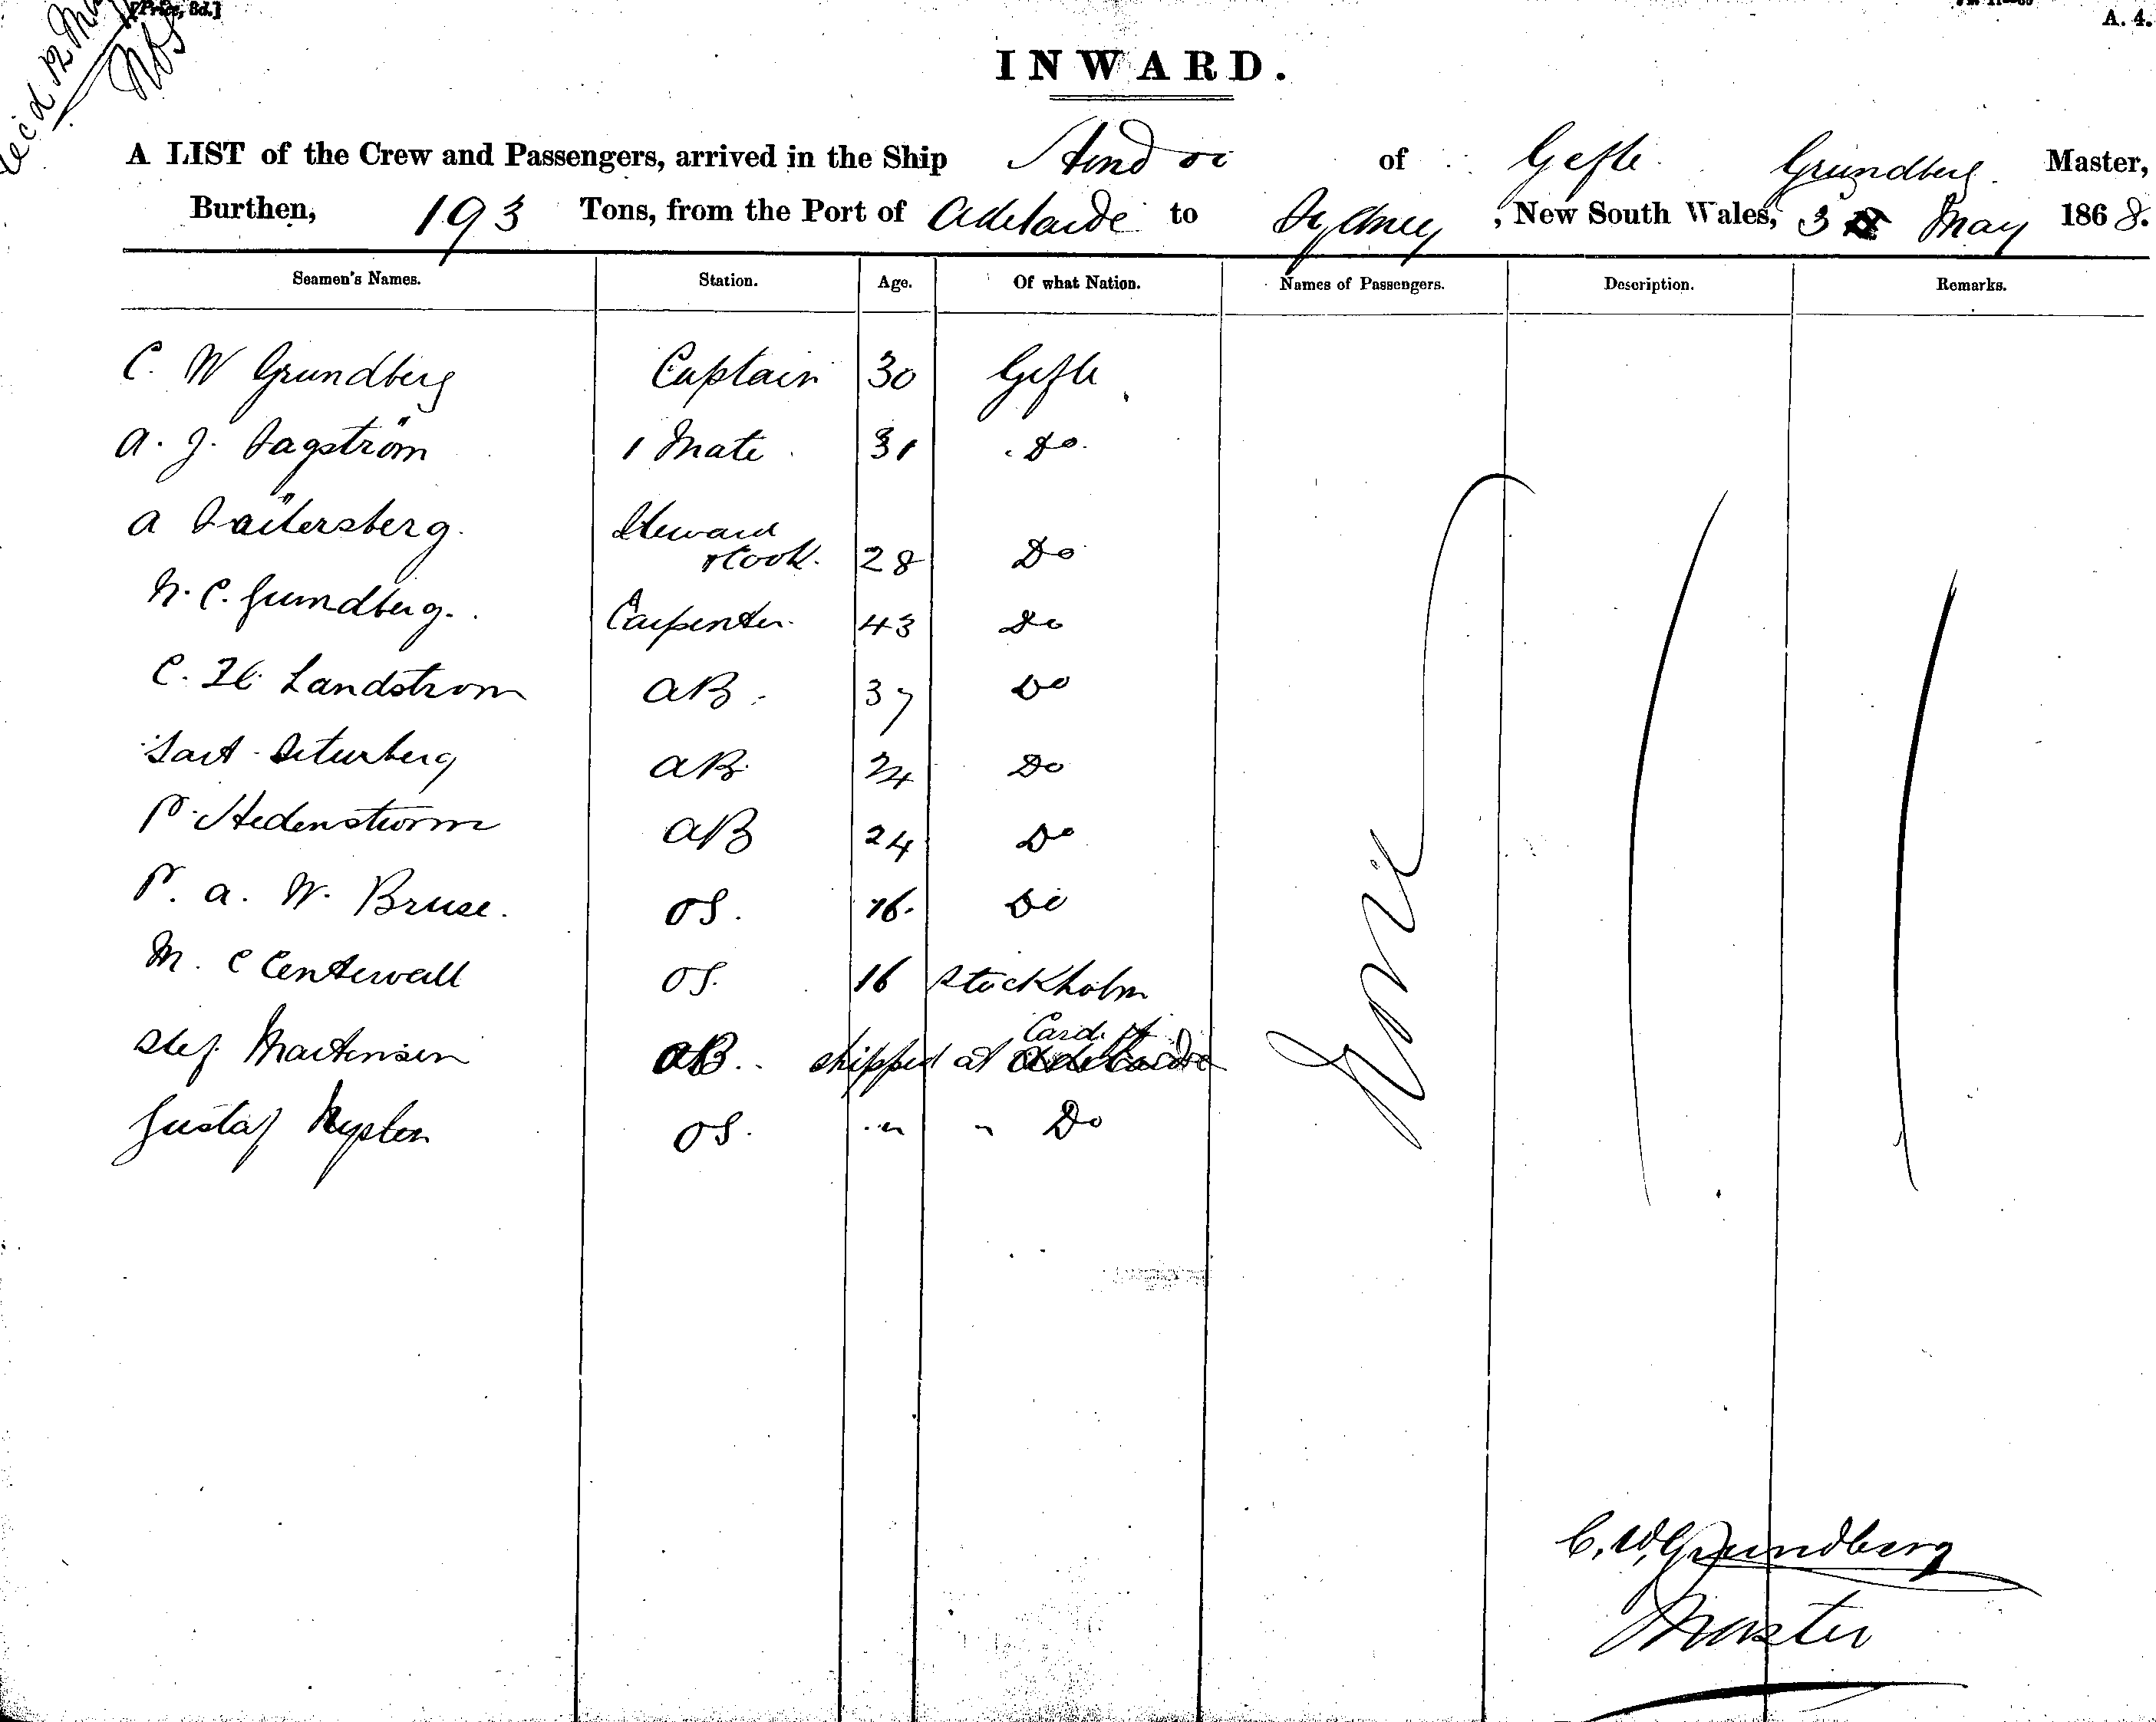 [Price, 3d.]
A. 4.
Rec'd 12 May
INWARD.
A LIST of the Crew and Passengers, arrived in the Ship of Gefle Grundberg Master,
Burthen, 193 Tons, from the Port of Adelaide to Sydney, New South Wales, 3 May 1868.
Seamen's Names. Station. Age. Of what Nation. Names of Passengers. Description. Remarks.
C. W Grundberg Captain 30 Gefle
A. J. Fagström 1 Mate 31 Do
A Steward & Cook. 28 Do
N. C. Grundberg. Carpenter 43 Do
C. H. Landstrom AB. 37 Do
AB 24 Do
P. Hedenstrom AB 24 Do
P. A. W. Bruse. OS. 16. Do
M. C Centerwall OS. 16 Stockholm
Martensen AB.. shipped at Cardiff
Gustaf Nysten OS. " " Do
None
C. W. Grundberg
Master